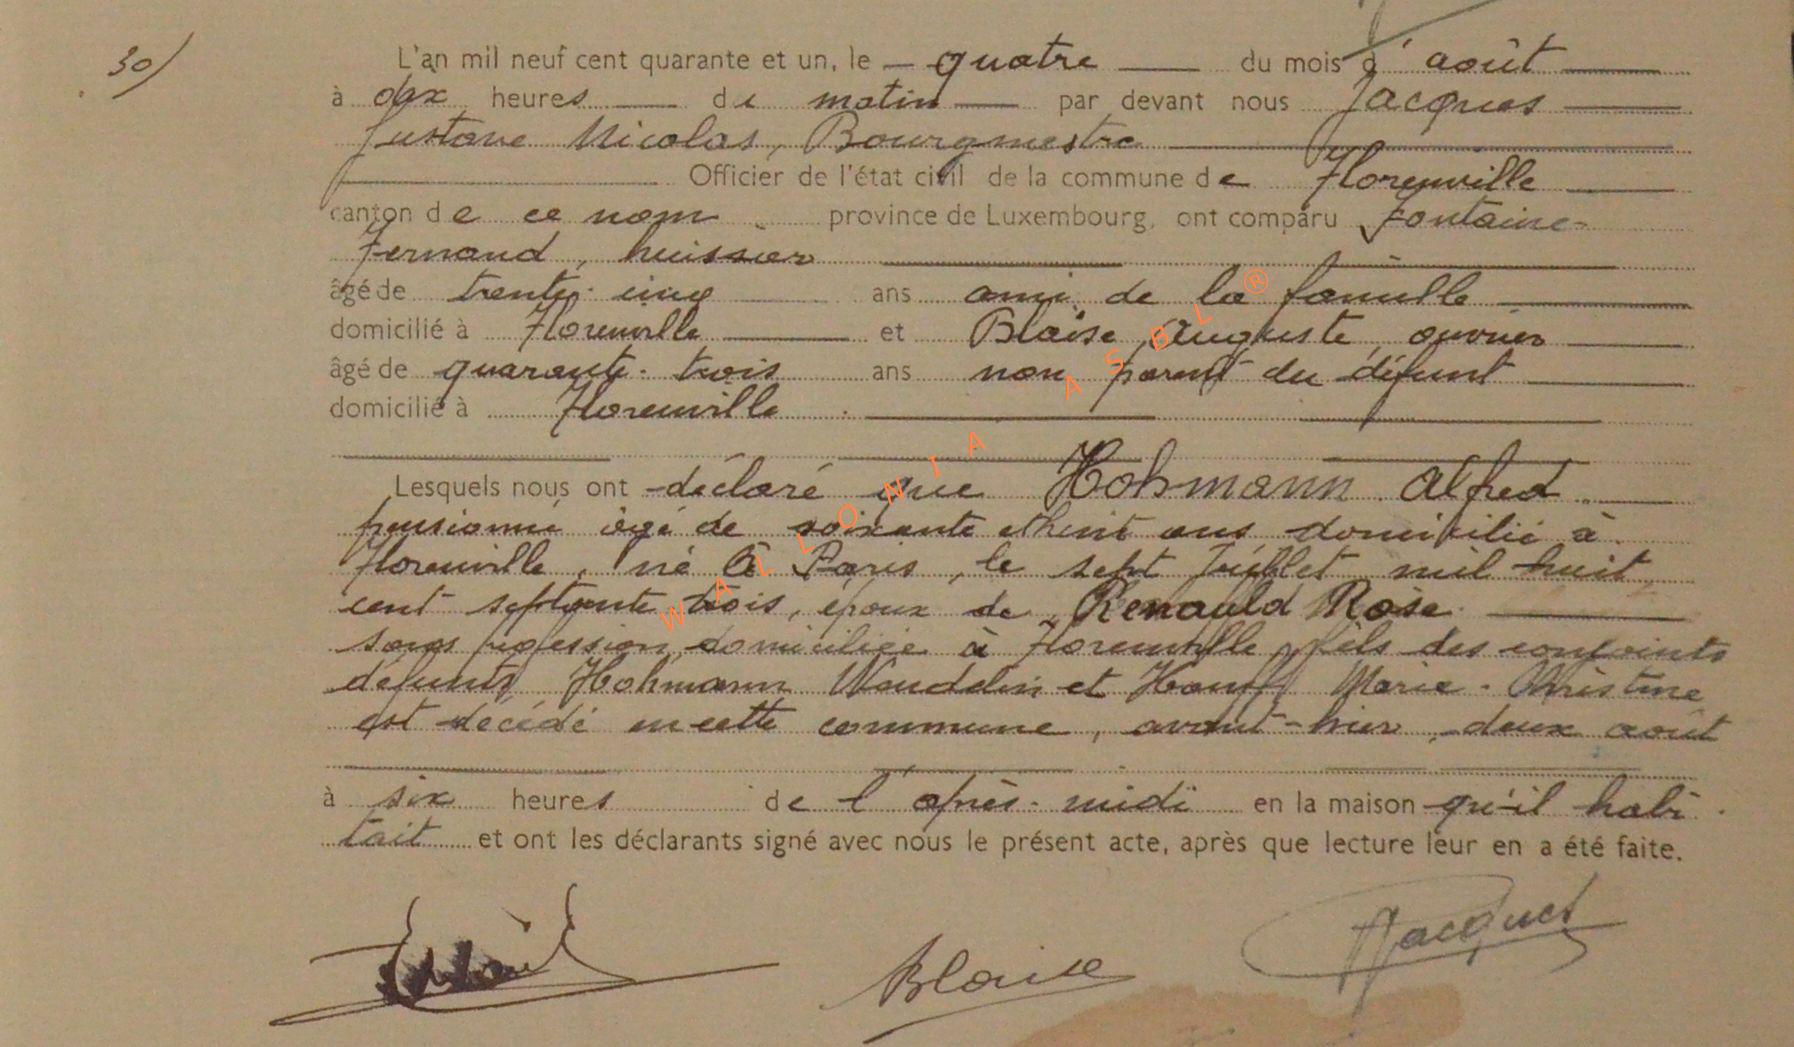 30)
L'an mil neuf cent quarante et un, le quatre du mois d'août
à dix heures du matin par devant nous Jacques
Gustave Nicolas, Bourgmestre
Officier de l'état civil de la commune de Florenville
canton de ce nom province de Luxembourg, ont comparu Fontaine
Fernand, huissier
âgé de trente-cinq ans ami de la famille
domicilié à Florenville et Blaise, Auguste, ouvrier
âgé de quarante-trois ans non parent du défunt
domicilié à Florenville
Lesquels nous ont déclaré que Hohmann Alfred
pensionné âgé de soixante et huit ans domicilié à
Florenville, né à Paris, le sept Juillet mil huit
cent septante trois, époux de Renauld Rose
sans profession, domiciliée à Florenville, fils des conjoints
défunts Hohmann Wendelin et Hauff Marie-Christine
est décédé en cette commune, avant-hier, deux août
à six heures de l'après-midi en la maison qu'il habi
tait et ont les déclarants signé avec nous le présent acte, après que lecture leur en a été faite.
Blaise
WALLONIA ASBL ®